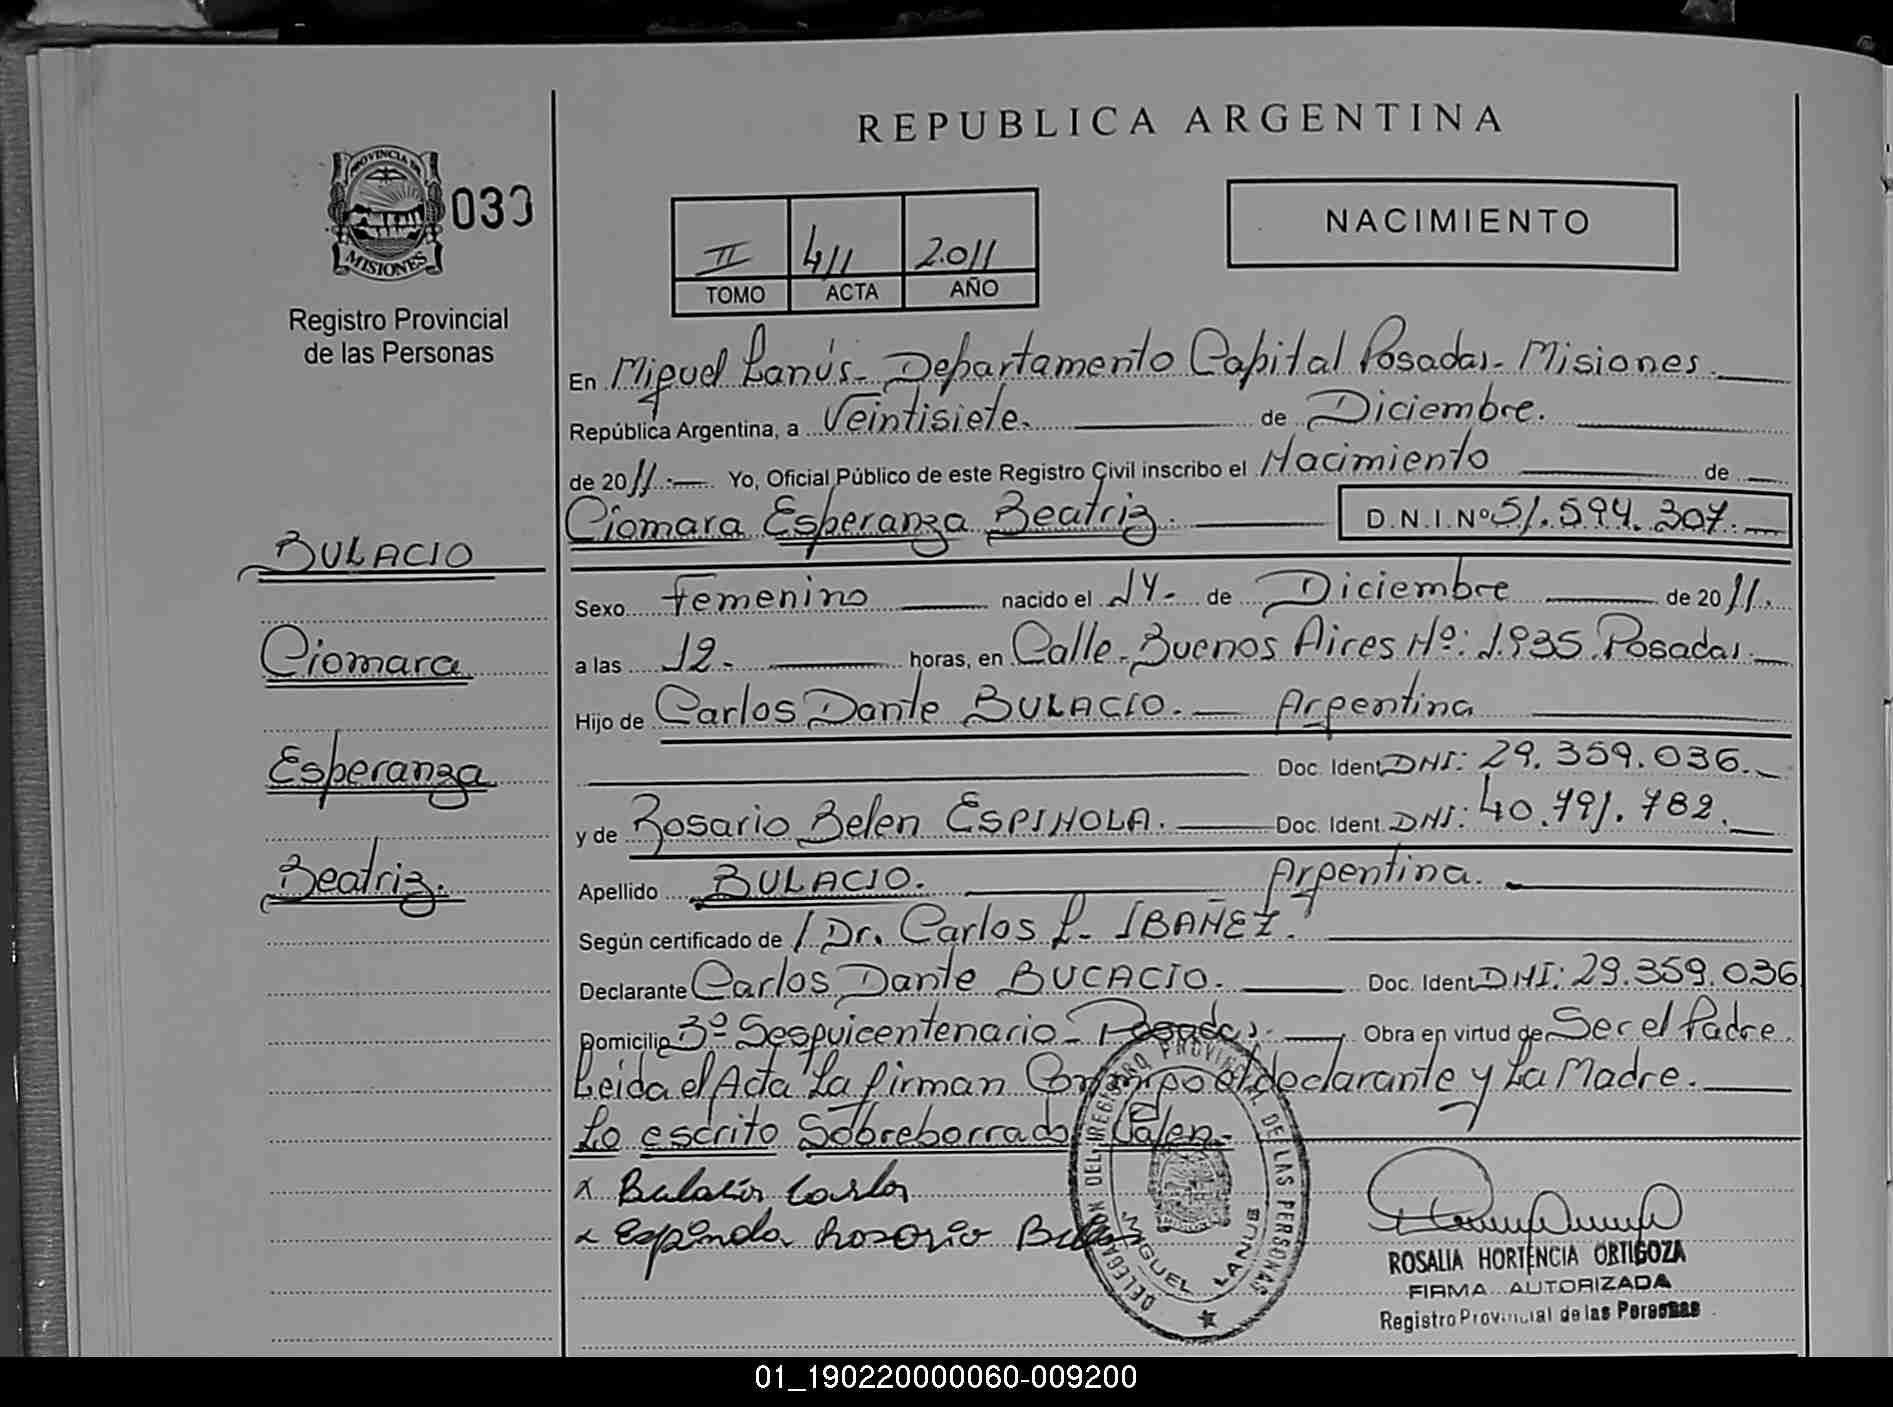 REPUBLICA ARGENTINA
PROVINCIA DE
MISIONES
Registro Provincial
de las Personas
NACIMIENTO
II 411 2.011
TOMO ACTA AÑO
En Miguel Lanús- Departamento Capital Posadas- Misiones.
República Argentina, a Veintisiete. de Diciembre.
de 2011.- Yo, Oficial Público de este Registro Civil inscribo el Nacimiento de
Ciomara Esperanza Beatriz. D.N.I.Nº 51.594.307.
BULACIO
Sexo Femenino nacido el 14. de Diciembre de 2011.
Ciomara
a las 12. horas, en Calle- Buenos Aires Nº: 1.935 Posadas.
Hijo de Carlos Dante BULACIO. Argentina
Esperanza
Doc. Ident DNI: 29.359.036.
y de Rosario Belen ESPINOLA. Doc. Ident. DNI: 40.791.782.
Beatriz.
Apellido BULACIO. Argentina.
Según certificado de / Dr. Carlos L. IBAÑEZ.
Declarante Carlos Dante BUCACIO. Doc. Ident DNI: 29.359.036
Domicilio 3º Sesquicentenario- Posadas. Obra en virtud de Ser el Padre.
Leida el Acta La firman Conmigo el declarante y La Madre.
Lo escrito Sobreborrado Valen.
x Bulacio Carlos
x Espindola Rosario Belen
DELEGACION DEL REGISTRO PROVINCIAL DE LAS PERSONAS
MIGUEL LANUS
ROSALIA HORTENCIA ORTIGOZA
FIRMA AUTORIZADA
Registro Provincial de las Personas
01_190220000060-009200